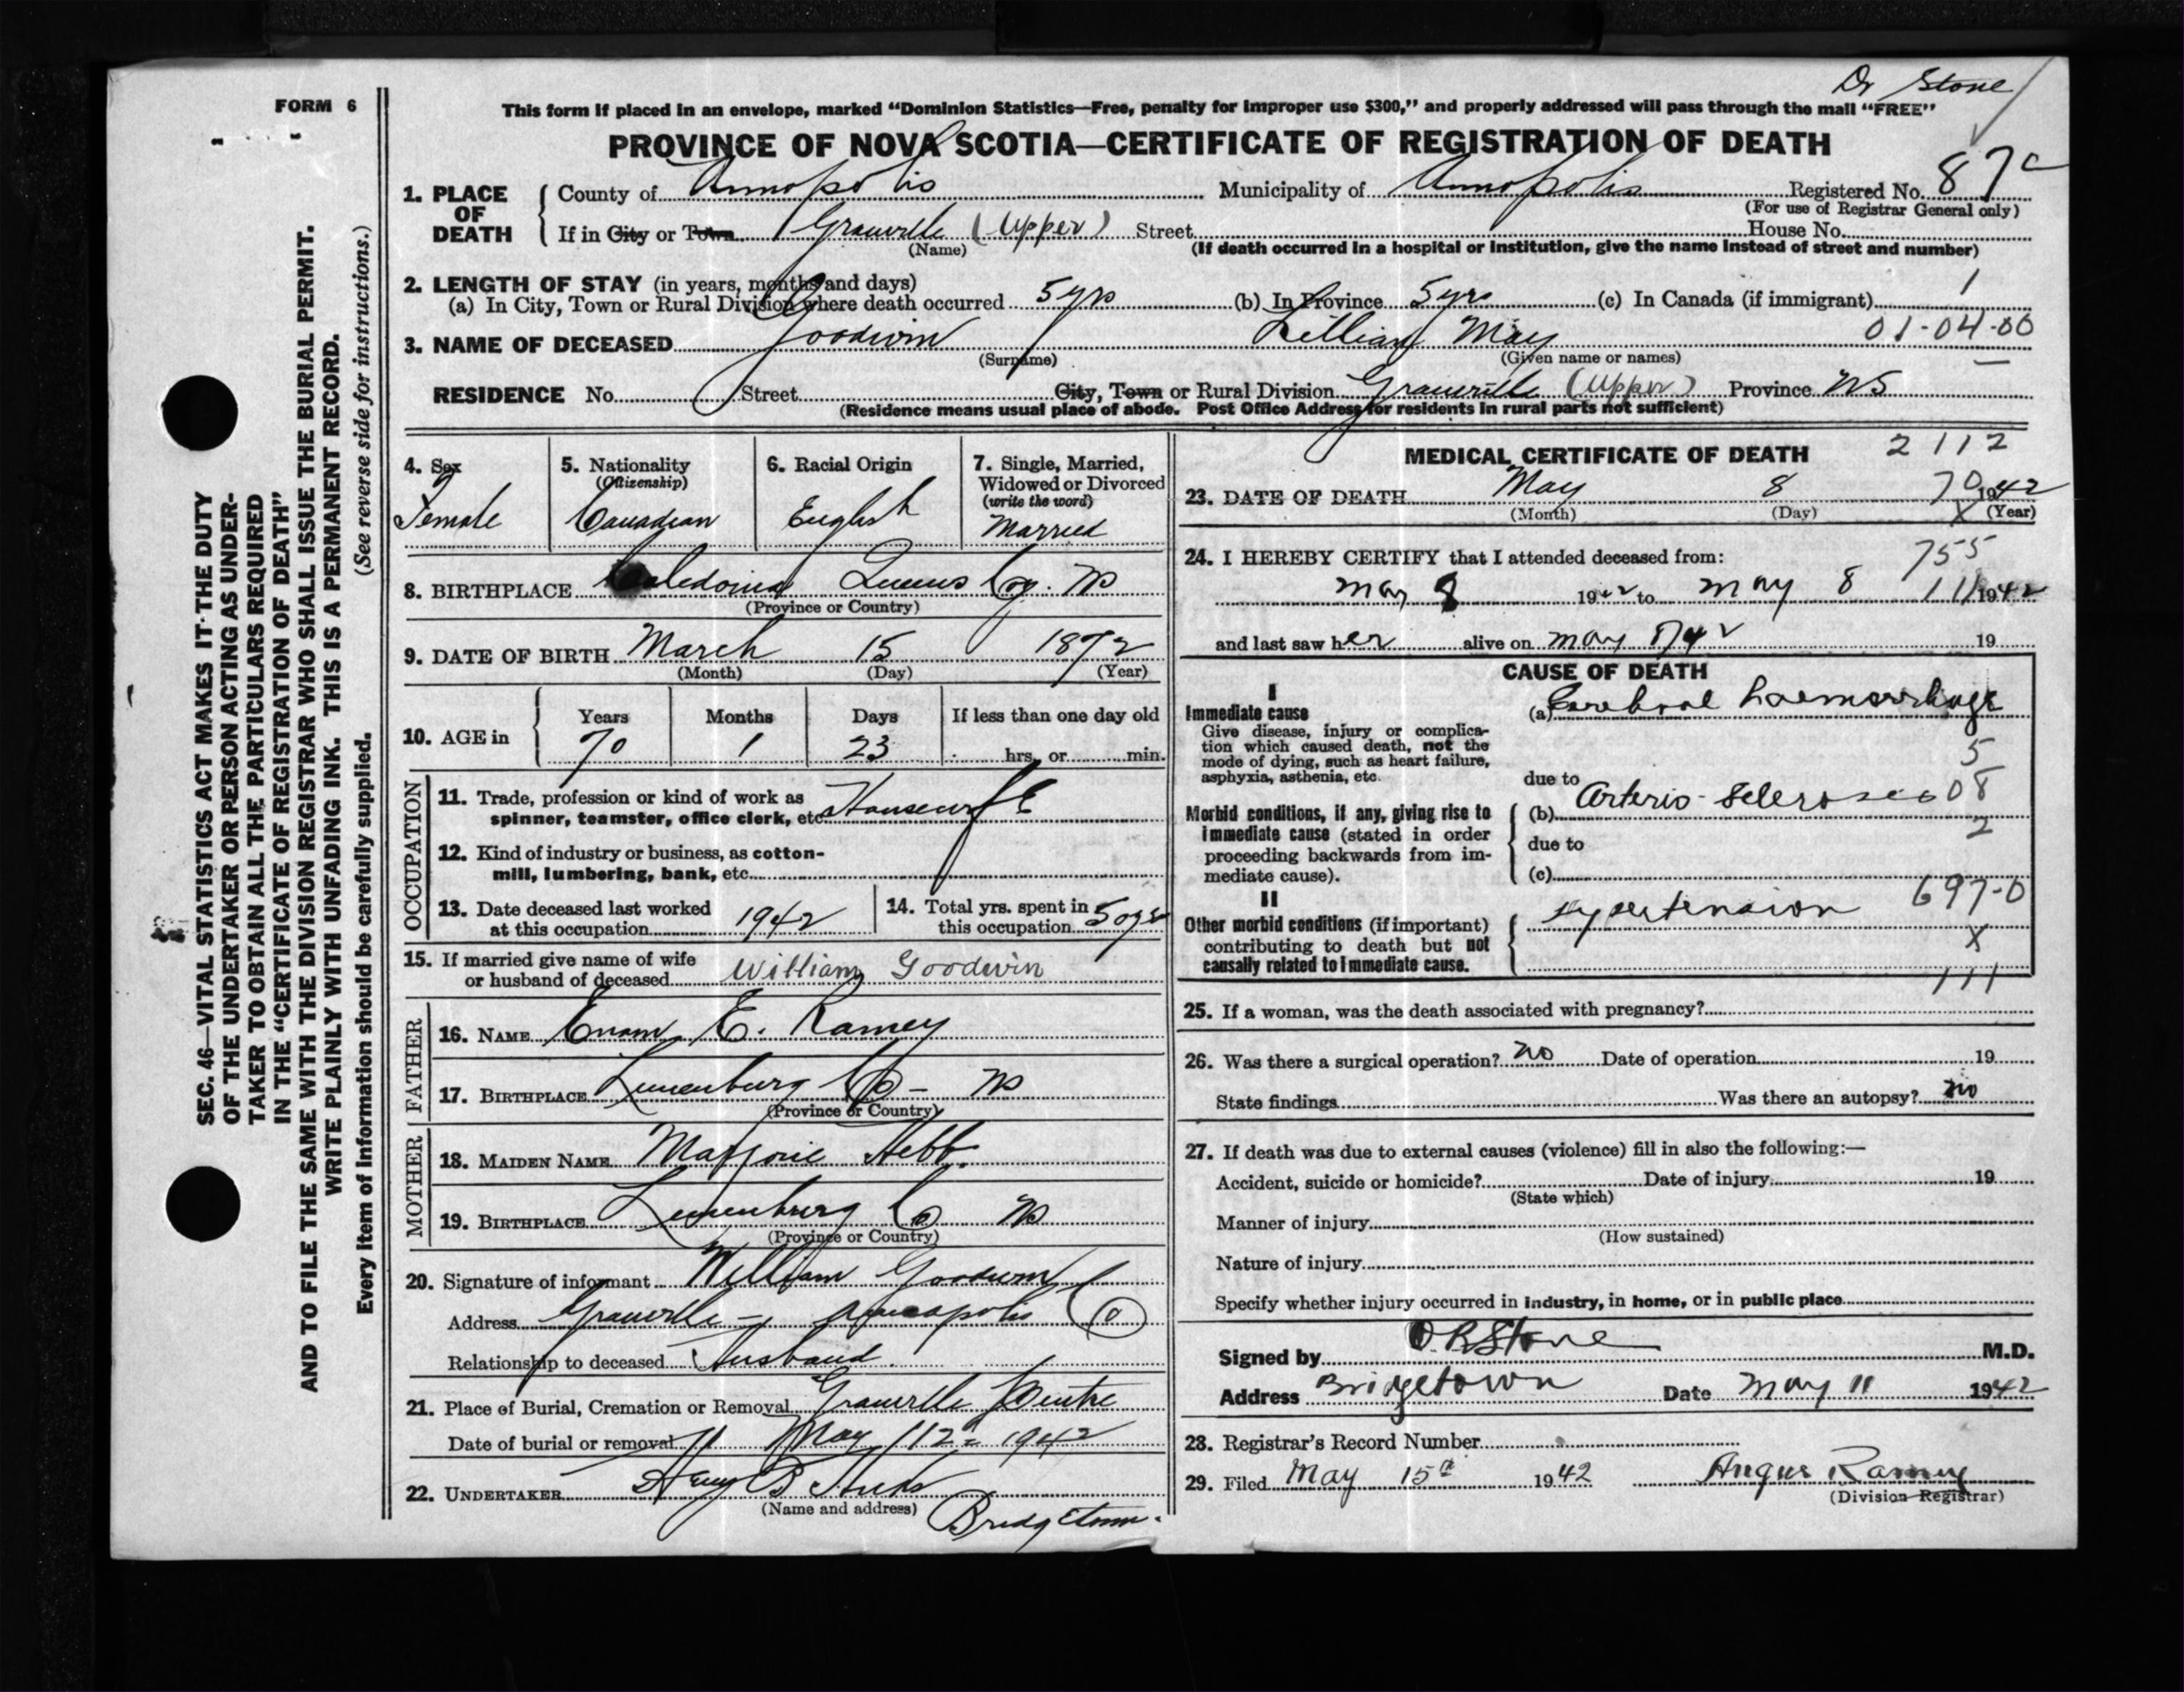 FORM 6
Dr Stone
This form if placed in an envelope, marked "Dominion Statistics—Free, penalty for improper use $300," and properly addressed will pass through the mail "FREE"
PROVINCE OF NOVA SCOTIA—CERTIFICATE OF REGISTRATION OF DEATH
1. PLACE OF DEATH
County of Annapolis Municipality of Annapolis Registered No. 87c
(For use of Registrar General only)
If in City or Town Granville (Upper) Street House No.
(Name) (If death occurred in a hospital or institution, give the name instead of street and number)
2. LENGTH OF STAY (in years, months and days) 1
(a) In City, Town or Rural Division where death occurred 5 yrs (b) In Province 5 yrs (c) In Canada (if immigrant)
3. NAME OF DECEASED Goodwin Lillian May 01-04-00
(Surname) (Given name or names)
RESIDENCE No. Street City, Town or Rural Division Granville (Upper) Province NS
(Residence means usual place of abode. Post Office Address for residents in rural parts not sufficient)
4. Sex Female
5. Nationality (Citizenship) Canadian
6. Racial Origin English
7. Single, Married, Widowed or Divorced (write the word) Married
8. BIRTHPLACE Caledonia Queens Co. NS
(Province or Country)
9. DATE OF BIRTH March 15 1872
(Month) (Day) (Year)
10. AGE in
Years Months Days If less than one day old
70 1 23 hrs. or min.
OCCUPATION
11. Trade, profession or kind of work as
spinner, teamster, office clerk, etc. Housewife
12. Kind of industry or business, as cotton-
mill, lumbering, bank, etc.
13. Date deceased last worked
at this occupation 1942
14. Total yrs. spent in
this occupation 50 yrs
15. If married give name of wife
or husband of deceased William Goodwin
FATHER
16. NAME E. Ramey
17. BIRTHPLACE Lunenburg Co - NS
(Province or Country)
MOTHER
18. MAIDEN NAME Marjorie Hebb.
19. BIRTHPLACE Lunenburg Co NS
(Province or Country)
20. Signature of informant William Goodwin
Address Granville - Annapolis Co
Relationship to deceased Husband.
21. Place of Burial, Cremation or Removal Granville Centre
Date of burial or removal May 12 1942
22. UNDERTAKER B Hicks
(Name and address) Bridgetown.
MEDICAL CERTIFICATE OF DEATH 2112
23. DATE OF DEATH May 8 70 1942
(Month) (Day) X (Year)
24. I HEREBY CERTIFY that I attended deceased from: 755
May 8 1942 to May 8 111 1942
and last saw her alive on May 8/42 19
CAUSE OF DEATH
I
Immediate cause
Give disease, injury or complica-
tion which caused death, not the
mode of dying, such as heart failure,
asphyxia, asthenia, etc.
(a) Cerebral haemorrhage
5
due to
Morbid conditions, if any, giving rise to
immediate cause (stated in order
proceeding backwards from im-
mediate cause).
(b) Arterio-Sclerosis 08
2
due to
(c)
II
Other morbid conditions (if important)
contributing to death but not
causally related to immediate cause.
Hypertension 697-0
X
111
25. If a woman, was the death associated with pregnancy?
26. Was there a surgical operation? no Date of operation 19
State findings Was there an autopsy? no
27. If death was due to external causes (violence) fill in also the following:—
Accident, suicide or homicide? Date of injury 19
(State which)
Manner of injury
(How sustained)
Nature of injury
Specify whether injury occurred in industry, in home, or in public place
Signed by O.R. Stone M.D.
Address Bridgetown Date May 11 1942
28. Registrar's Record Number
29. Filed May 15th 1942 Angus Ramey
(Division Registrar)
SEC. 46—VITAL STATISTICS ACT MAKES IT THE DUTY
OF THE UNDERTAKER OR PERSON ACTING AS UNDER-
TAKER TO OBTAIN ALL THE PARTICULARS REQUIRED
IN THE "CERTIFICATE OF REGISTRATION OF DEATH"
AND TO FILE THE SAME WITH THE DIVISION REGISTRAR WHO SHALL ISSUE THE BURIAL PERMIT.
WRITE PLAINLY WITH UNFADING INK. THIS IS A PERMANENT RECORD.
Every item of information should be carefully supplied. (See reverse side for instructions.)